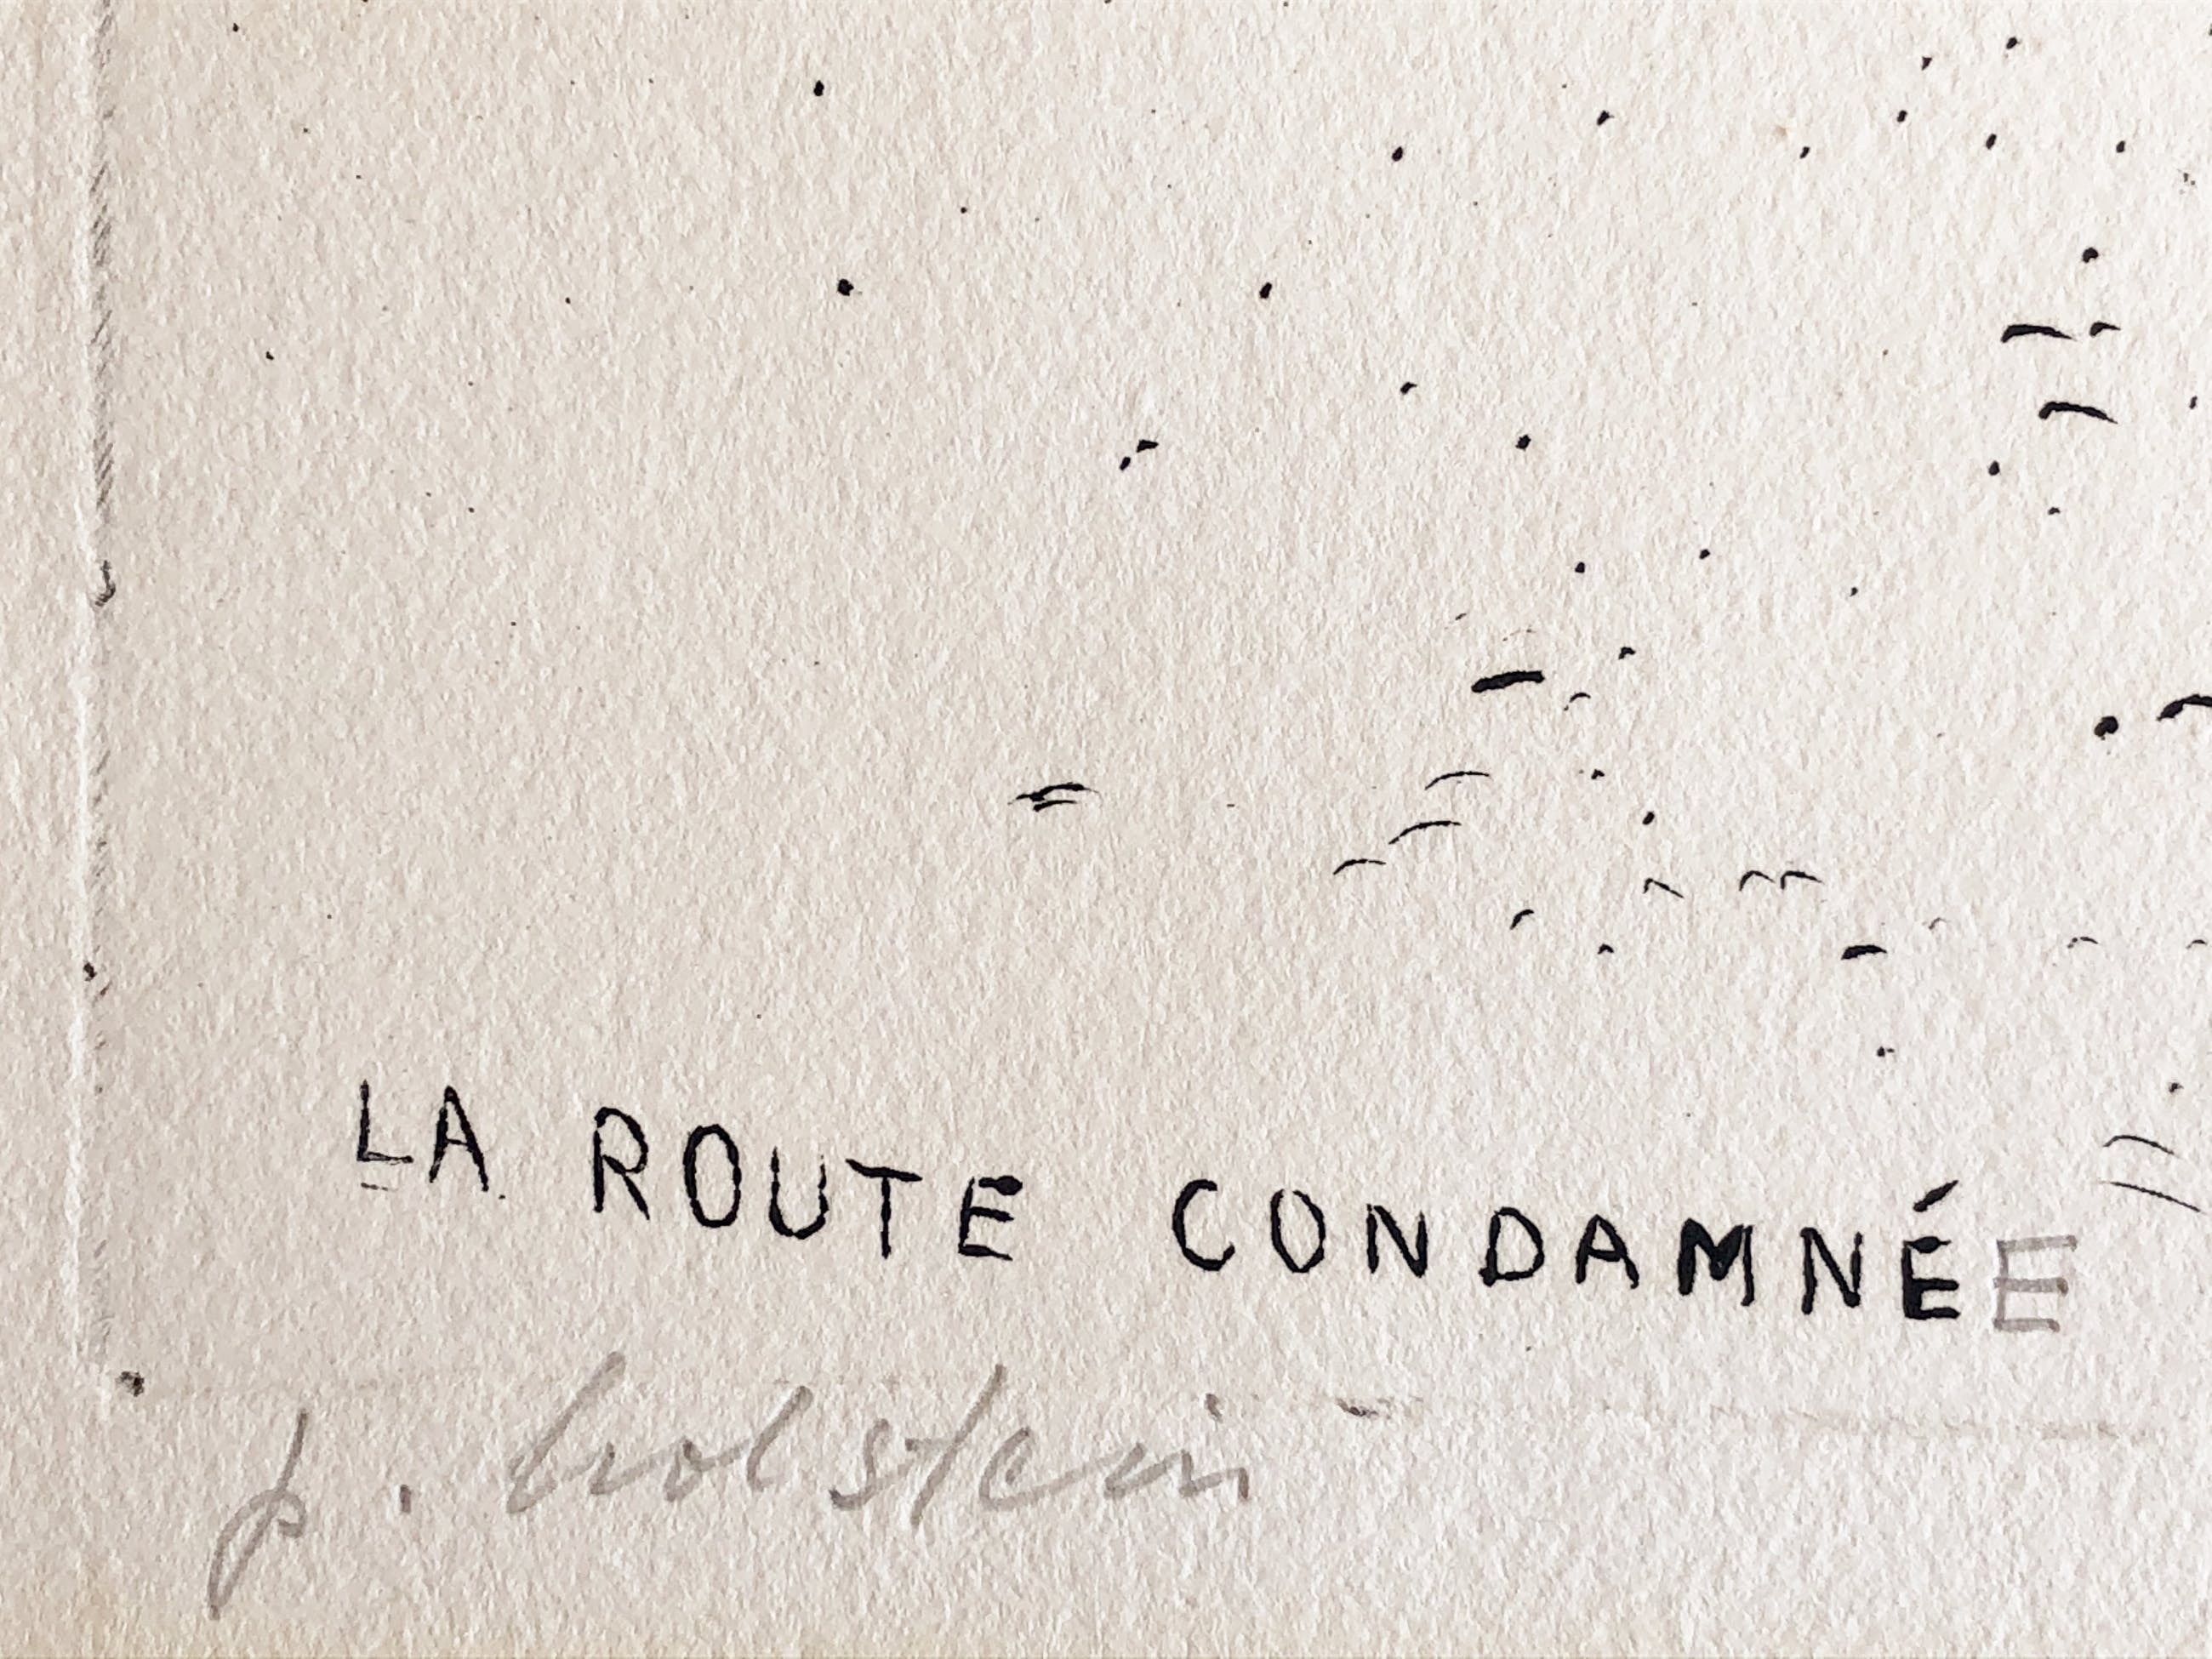 LA ROUTE CONDAMNÉE
p. holstein